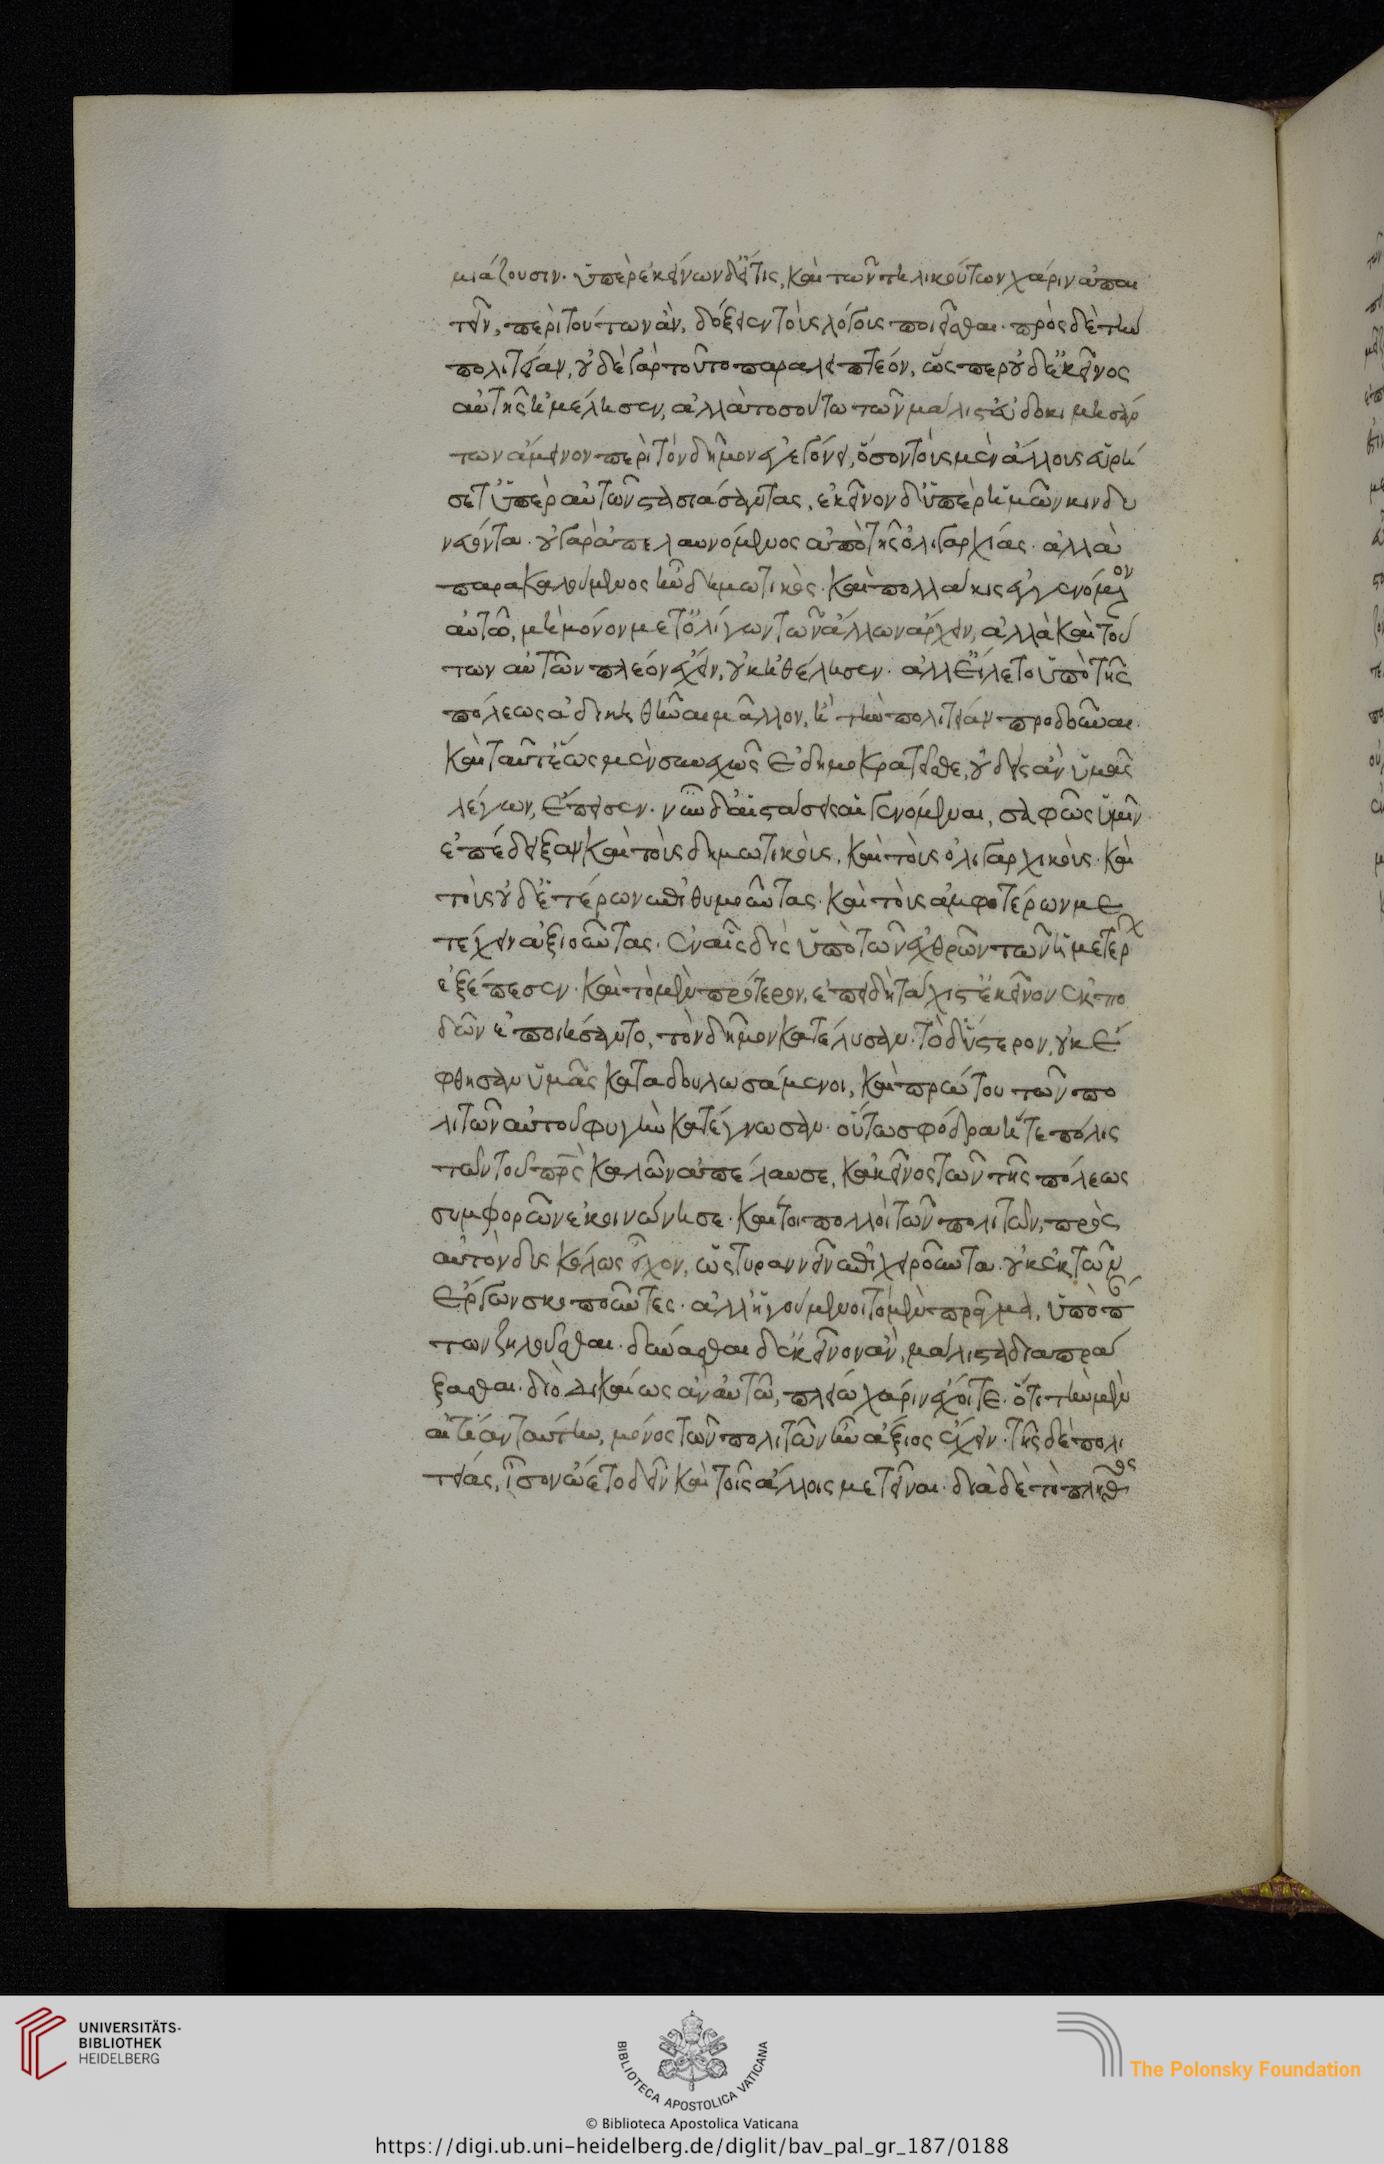 μιάζουσιν. ὑπὲρ ἐκείνων δ' εἴ τις, καὶ τῶν τηλικούτων χάριν ἀπαι
τεῖν, περὶ τούτων ἂν, δόξειεν τοὺς λόγους ποιεῖσθαι. πρὸς δὲ τὴν
πολιτείαν, οὐδὲ γὰρ τοῦτο παραλειπτέον, ὥσπερ οὐδ' ἐκεῖνος
αὐτῆς ἠμέλησεν, ἀλλὰ τοσούτω τῶν μάλιστ' εὐδοκιμησάν
των ἀμεινον περὶ τὸν δῆμον γέγονε, ὅσον τοὺς μὲν ἄλλους εὑρή
σεθ' ὑπὲρ αὐτῶν στασιάσαντας, ἐκεῖνον δ' ὑπὲρ ἡμῶν κινδυ
νεύοντα. οὐ γὰρ ἀπελαυνόμενος ἀπὸ τῆς ὀλιγαρχίας. ἀλλὰ
παρακαλούμενος ἦν δημωτικὸς. καὶ πολλάκις ἐκγενόμενον
αὐτῶ, μὴ μόνον μετ' ὀλίγων τῶν ἄλλων ἄρχειν, ἀλλὰ καὶ τού
των αὐτῶν πλέον ἔχειν, οὐκ ἠθέλησεν. ἀλλ' εἵλετο ὑπὸ τῆς
πόλεως ἀδικηθῆναι μᾶλλον, ἢ τὴν πολιτείαν προδοῦναι.
καὶ ταῦτ' ἕως μὲν συνεχῶς ἐδημοκρατεῖσθε, οὐδεὶς ἂν ὑμᾶς
λέγων, ἔπεισεν. νῦν δ' αἱ στάσεις αἱ γενόμεναι, σαφῶς ὑμῖν
ἐπέδειξαν καὶ τοὺς δημωτικοὺς, καὶ τοὺς ὀλιγαρχικοὺς. καὶ
τοὺς οὐδετέρων ἐπιθυμοῦντας. καὶ τοὺς ἀμφοτέρων με
τέχειν ἀξιοῦντας. ἐν αἷς δὶς ὑπὸ τῶν ἐχθρῶν τῶν ἡμετέρων
ἐξέπεσεν. καὶ τὸ μὲν πρότερον, ἐπειδὴ τάχιστ' ἐκεῖνον ἐκπο
δὼν ἐποιήσαντο, τὸν δῆμον κατέλυσαν. τὸ δ' ὕστερον, οὐκ ἔ
φθησαν ὑμᾶς καταδουλωσάμενοι, καὶ πρώτου τῶν πο
λιτῶν αὐτοῦ φυγὴν κατέγνωσαν. οὕτω σφόδρα ἥτε πόλις
τῶν τοῦ πρς κακῶν ἀπέλαυσε, κἀκεῖνος τῶν τῆς πόλεως
συμφορῶν ἐκοινώνησε. καίτοι πολλοὶ τῶν πολιτῶν, πρὸς
αὐτὸν δυσκόλως εἶχον, ὡς τυραννεῖν ἐπιχειροῦντα. οὐκ ἐκ τῶν
ἔργων σκοποῦντες. ἀλλ' ἡγούμενοι τὸ μὲν πρᾶγμα, ὑπὸ πάν
των ζηλοῦσθαι. δύνασθαι δ' ἐκεῖνον ἂν, μάλιστα διαπρά
ξασθαι. διὸ δικαίως ἂν αὐτῶ, πλείω χάριν ἔχοιτε. ὅτι τὴν μὲν
αἰτίαν ταύτην, μόνος τῶν πολιτῶν ἦν ἄξιος ἔχειν. τῆς δὲ πολι
τείας, ἴσον ὤετο δεῖν καὶ τοῖς ἄλλοις μετεῖναι. διὰ δὲ τὸ πλῆθος
UNIVERSITÄTS-
BIBLIOTHEK
HEIDELBERG
BIBLIOTECA APOSTOLICA VATICANA
The Polonsky Foundation
© Biblioteca Apostolica Vaticana
https://digi.ub.uni-heidelberg.de/diglit/bav_pal_gr_187/0188